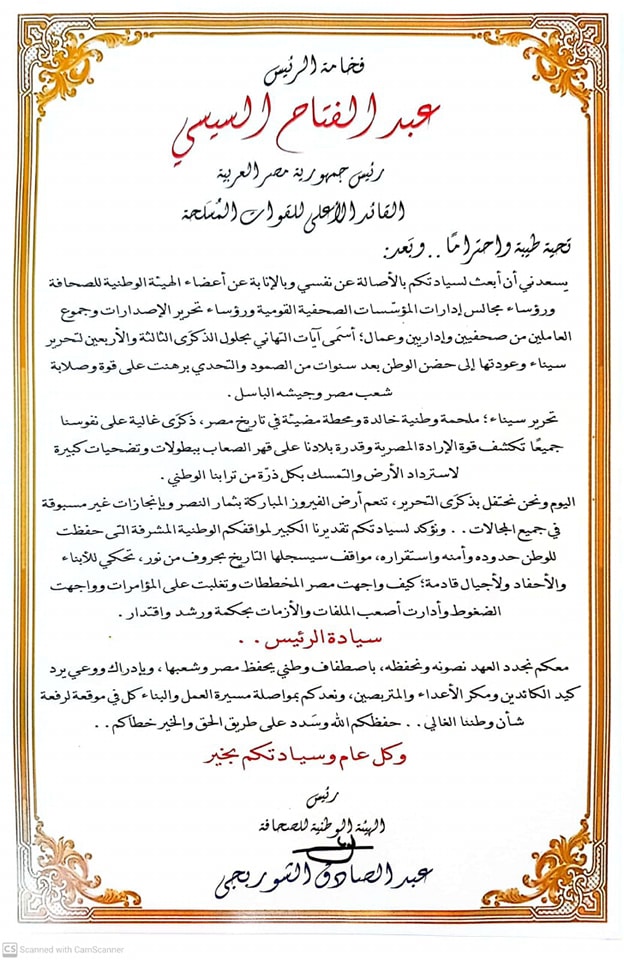 فخامة الرئيس
عبد الفتاح السيسي
رئيس جمهورية مصر العربية
القائد الأعلى للقوات المُسَلحة
تحية طيبة واحترامًا .. وبَعد:
يسعدني أن أبعث لسيادتكم بالأصالة عن نفسي وبالإنابة عن أعضاء الهيئة الوطنية للصحافة
ورؤساء مجالس إدارات المؤسّسات الصحفية القومية ورؤساء تحرير الإصدارات وجموع
العاملين من صحفيين وإداريين وعمال؛ أسمَى آيات التهاني بحلول الذكرَى الثالثة والأربعين لتحرير
سيناء وعودتها إلى حضن الوطن بعد سنوات من الصمود والتحدي برهنت على قوة وصلابة
شعب مصر وجيشه الباسل .
تحرير سيناء؛ ملحمة وطنية خالدة ومحطة مضيئة في تاريخ مصر، ذكرَى غالية على نفوسنا
جميعًا تكشف قوة الإرادة المصرية وقدرة بلادنا على قهر الصعاب ببطولات وتضحيات كبيرة
لاسترداد الأرض والتمسك بكل ذرّة من ترابنا الوطني .
اليوم ونحن نحتفل بذكرَى التحرير، تنعم أرض الفيروز المباركة بثمار النصر وبإنجازات غير مسبوقة
في جميع المجالات . . ونؤكد لسيادتكم تقديرنا الكبير لمواقفكم الوطنية المشرفة التى حفظت
للوطن حدوده وأمنه واستقراره، مواقف سيسجلها التاريخ بحروف من نور، تحكي للأبناء
والأحفاد ولأجيال قادمة؛ كيف واجهت مصر المخططات وتغلبت على المؤامرات وواجهت
الضغوط وأدارت أصعب الملفات والأزمات بحكمة ورشد واقتدار .
سيادة الرئيس . .
معكم نجدد العهد نصونه ونحفظه، باصطفاف وطني يحفظ مصر وشعبها، وبإدراك ووعي يرد
كيد الكائدين ومكر الأعداء والمتربصين، ونعدكم بمواصلة مسيرة العمل والبناء كل في موقعه لرفعة
شأن وطننا الغالي . . حفظكم الله وسَدد على طريق الحق والخير خطاكم . .
وكل عام وسيادتكم بخير
رئيس
الهيئة الوطنية للصحافة
عبد الصادق الشوربجى
CS Scanned with CamScanner